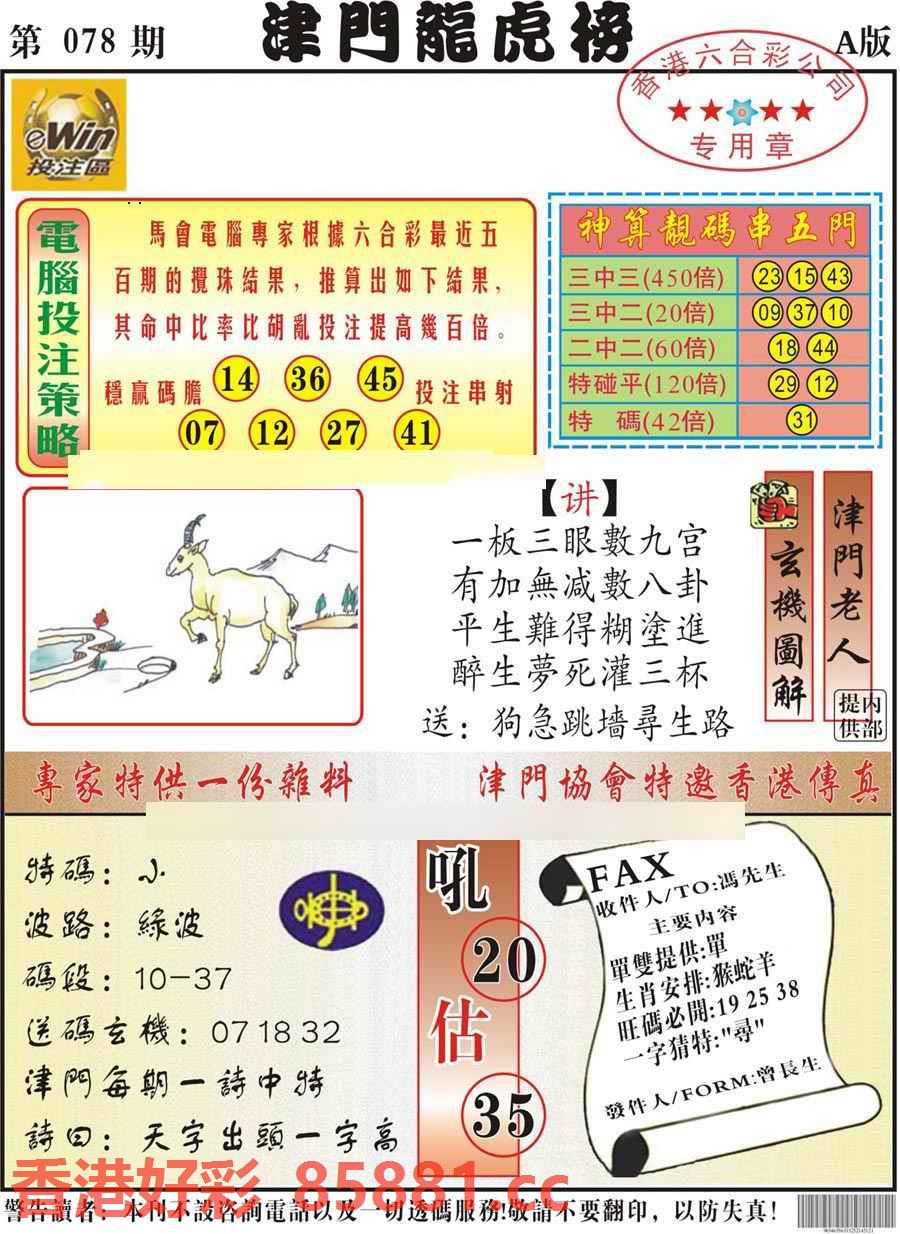 第 078 期
津門龍虎榜
A版
香港六合彩公司
专用章
eWin
投注區
電腦投注策略
馬會電腦專家根據六合彩最近五
百期的攪珠結果，推算出如下結果，
其命中比率比胡亂投注提高幾百倍。
穩贏碼膽 14 36 45 投注串射
07 12 27 41
神算靚碼串五門
三中三(450倍) 23 15 43
三中二(20倍) 09 37 10
二中二(60倍) 18 44
特碰平(120倍) 29 12
特 碼(42倍) 31
【讲】
一板三眼數九宫
有加無减數八卦
平生難得糊塗進
醉生夢死灌三杯
送：狗急跳墙尋生路
玄機圖解
津門老人
内部提供
專家特供一份雜料
津門協會特邀香港傳真
特碼：小
波路：綠波
碼段：10-37
送碼玄機：07 18 32
津門每期一詩中特
詩曰：天字出頭一字高
吼
20
估
35
FAX
收件人/TO:馮先生
主要内容
單雙提供:單
生肖安排:猴蛇羊
旺碼必開:19 25 38
一字猜特:"尋"
發件人/FORM:曾長生
香港好彩 85881.cc
警告讀者：本刊不設咨詢電話以及一切透碼服務!敬請不要翻印，以防失真!